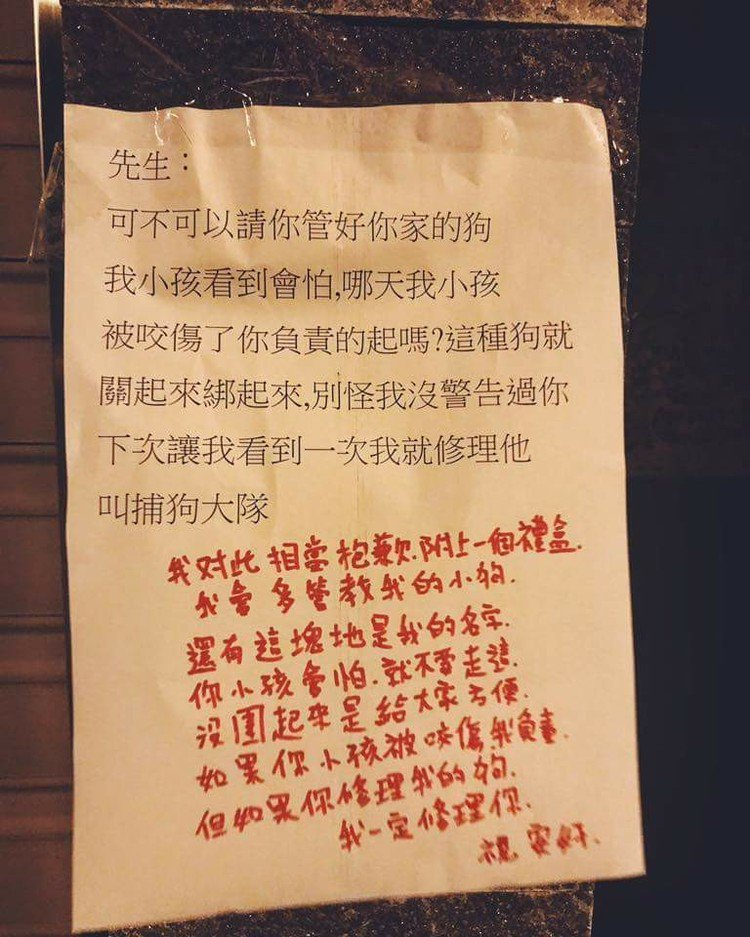 先生：
可不可以請你管好你家的狗
我小孩看到會怕,哪天我小孩
被咬傷了你負責的起嗎?這種狗就
關起來綁起來,別怪我沒警告過你
下次讓我看到一次我就修理他
叫捕狗大隊
我对此相當抱歉.附上一個禮盒.
我會多管教我的小狗.
還有這塊地是我的名字.
你小孩會怕.就不要走這.
沒圍起來是給大家方便.
如果你小孩被咬傷.我負責.
但如果你修理我的狗.
我一定修理你.
祝安好.